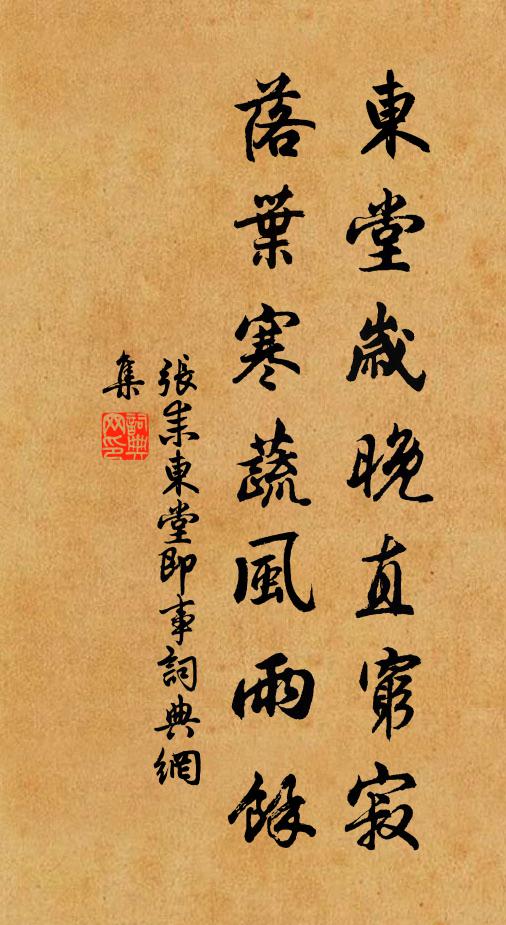 東堂歲晚直窮寂
落葉寒蔬風雨餘
張耒東堂即事詞典網
集
詞典网印